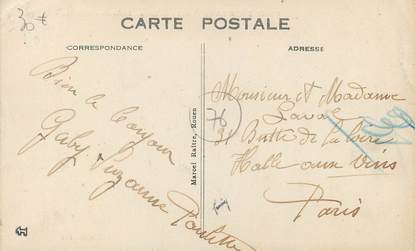 30€
CARTE POSTALE
CORRESPONDANCE
ADRESSE
Bien le bonjour
Gaby Suzanne Paulette
Marcel Raître, Rouen
Monsieur et Madame
Laval
31 Butte de la Loire
Halle aux Vins
Paris